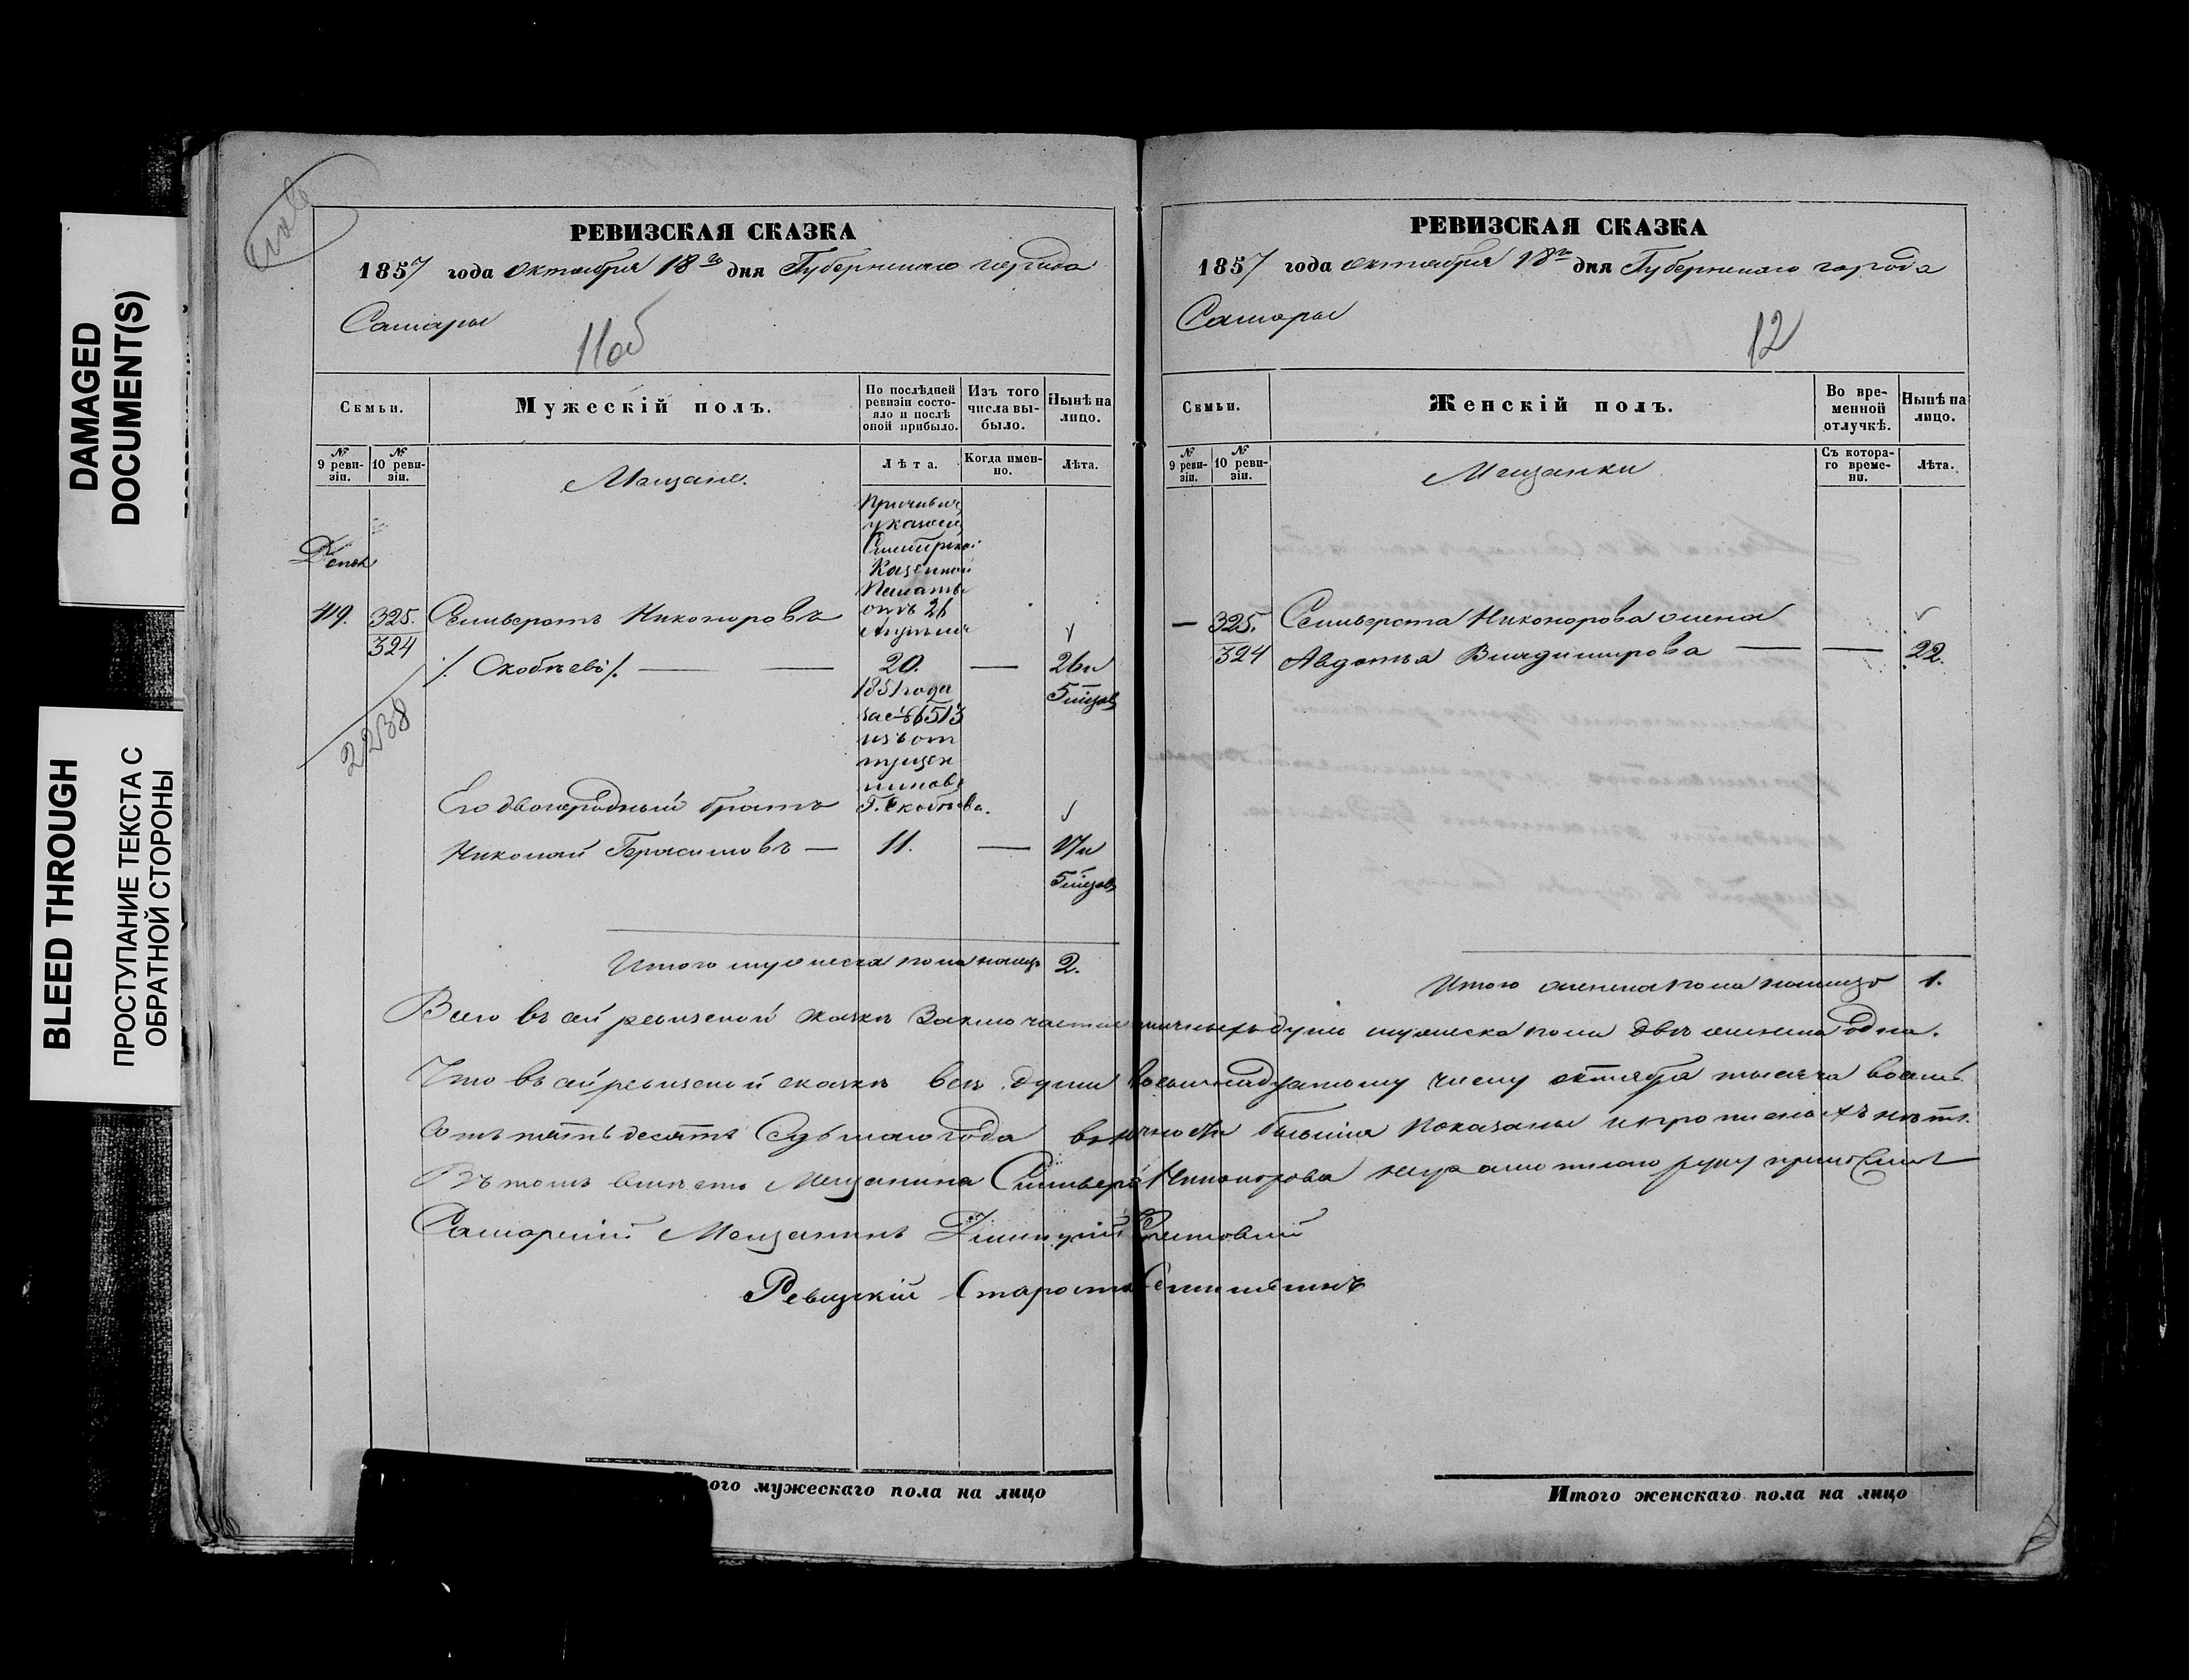 DAMAGED
DOCUMENT(S)
BLEED THROUGH
ПРОСТУПАНИЕ ТЕКСТА С
ОБРАТНОЙ СТОРОНЫ
РЕВИЗСКАЯ СКАЗКА
1857 года октября 18го дня Губернскаго города
Самары
11об
Семьи.
Мужескій полъ.
По послѣдней ревизіи состояло и послѣ оной прибыло.
Изъ того числа выбыло.
Нынѣ на лицо.
№ 9 ревизіи.
№ 10 ревизіи.
Мещане.
Лѣта.
Когда именно.
Лѣта.
Причисленъ
указомъ
Симбирской
Казенной
Палаты
отъ 21
419. 325. Селиверстъ Никоноровъ
324
/: Скобѣевъ :/. — — 20. — 26 и
1851 года 5 мѣсяц
за № 6513
изъ от
пущен
никовъ
Г. Скобѣева.
2238
Его двоюродный братъ
Николай Герасимовъ — 11. — 17 и
5 мѣсяц
Итого мужеска пола налицо 2.
РЕВИЗСКАЯ СКАЗКА
1857 года октября 18го дня Губернскаго города
Самары
12
Семьи.
Женскій полъ.
Во временной отлучкѣ.
Нынѣ на лицо.
№ 9 ревизіи.
№ 10 ревизіи.
Мещанки
Съ котораго времени.
Лѣта.
— 325. Селиверста Никонорова жена
324 Авдотья Владимирова — — 22.
Итого женска пола налицо 1.
Всего въ сей ревизской сказкѣ заключается наличныхъ душъ мужеска пола двѣ женска одна.
Что въ сей ревизской сказкѣ всѣ души восемнадцатому числу октября тысяча восемь
сотъ пятьдесятъ седьмаго года въ личности бывшія показаны и прописныхъ нѣтъ.
Въ томъ вмѣсто Мещанина Селиверста Никонорова неграмотнаго руку приложилъ
Самарскій Мещанинъ Дмитрій
Ревизскій Староста
Итого мужескаго пола на лицо
Итого женскаго пола на лицо